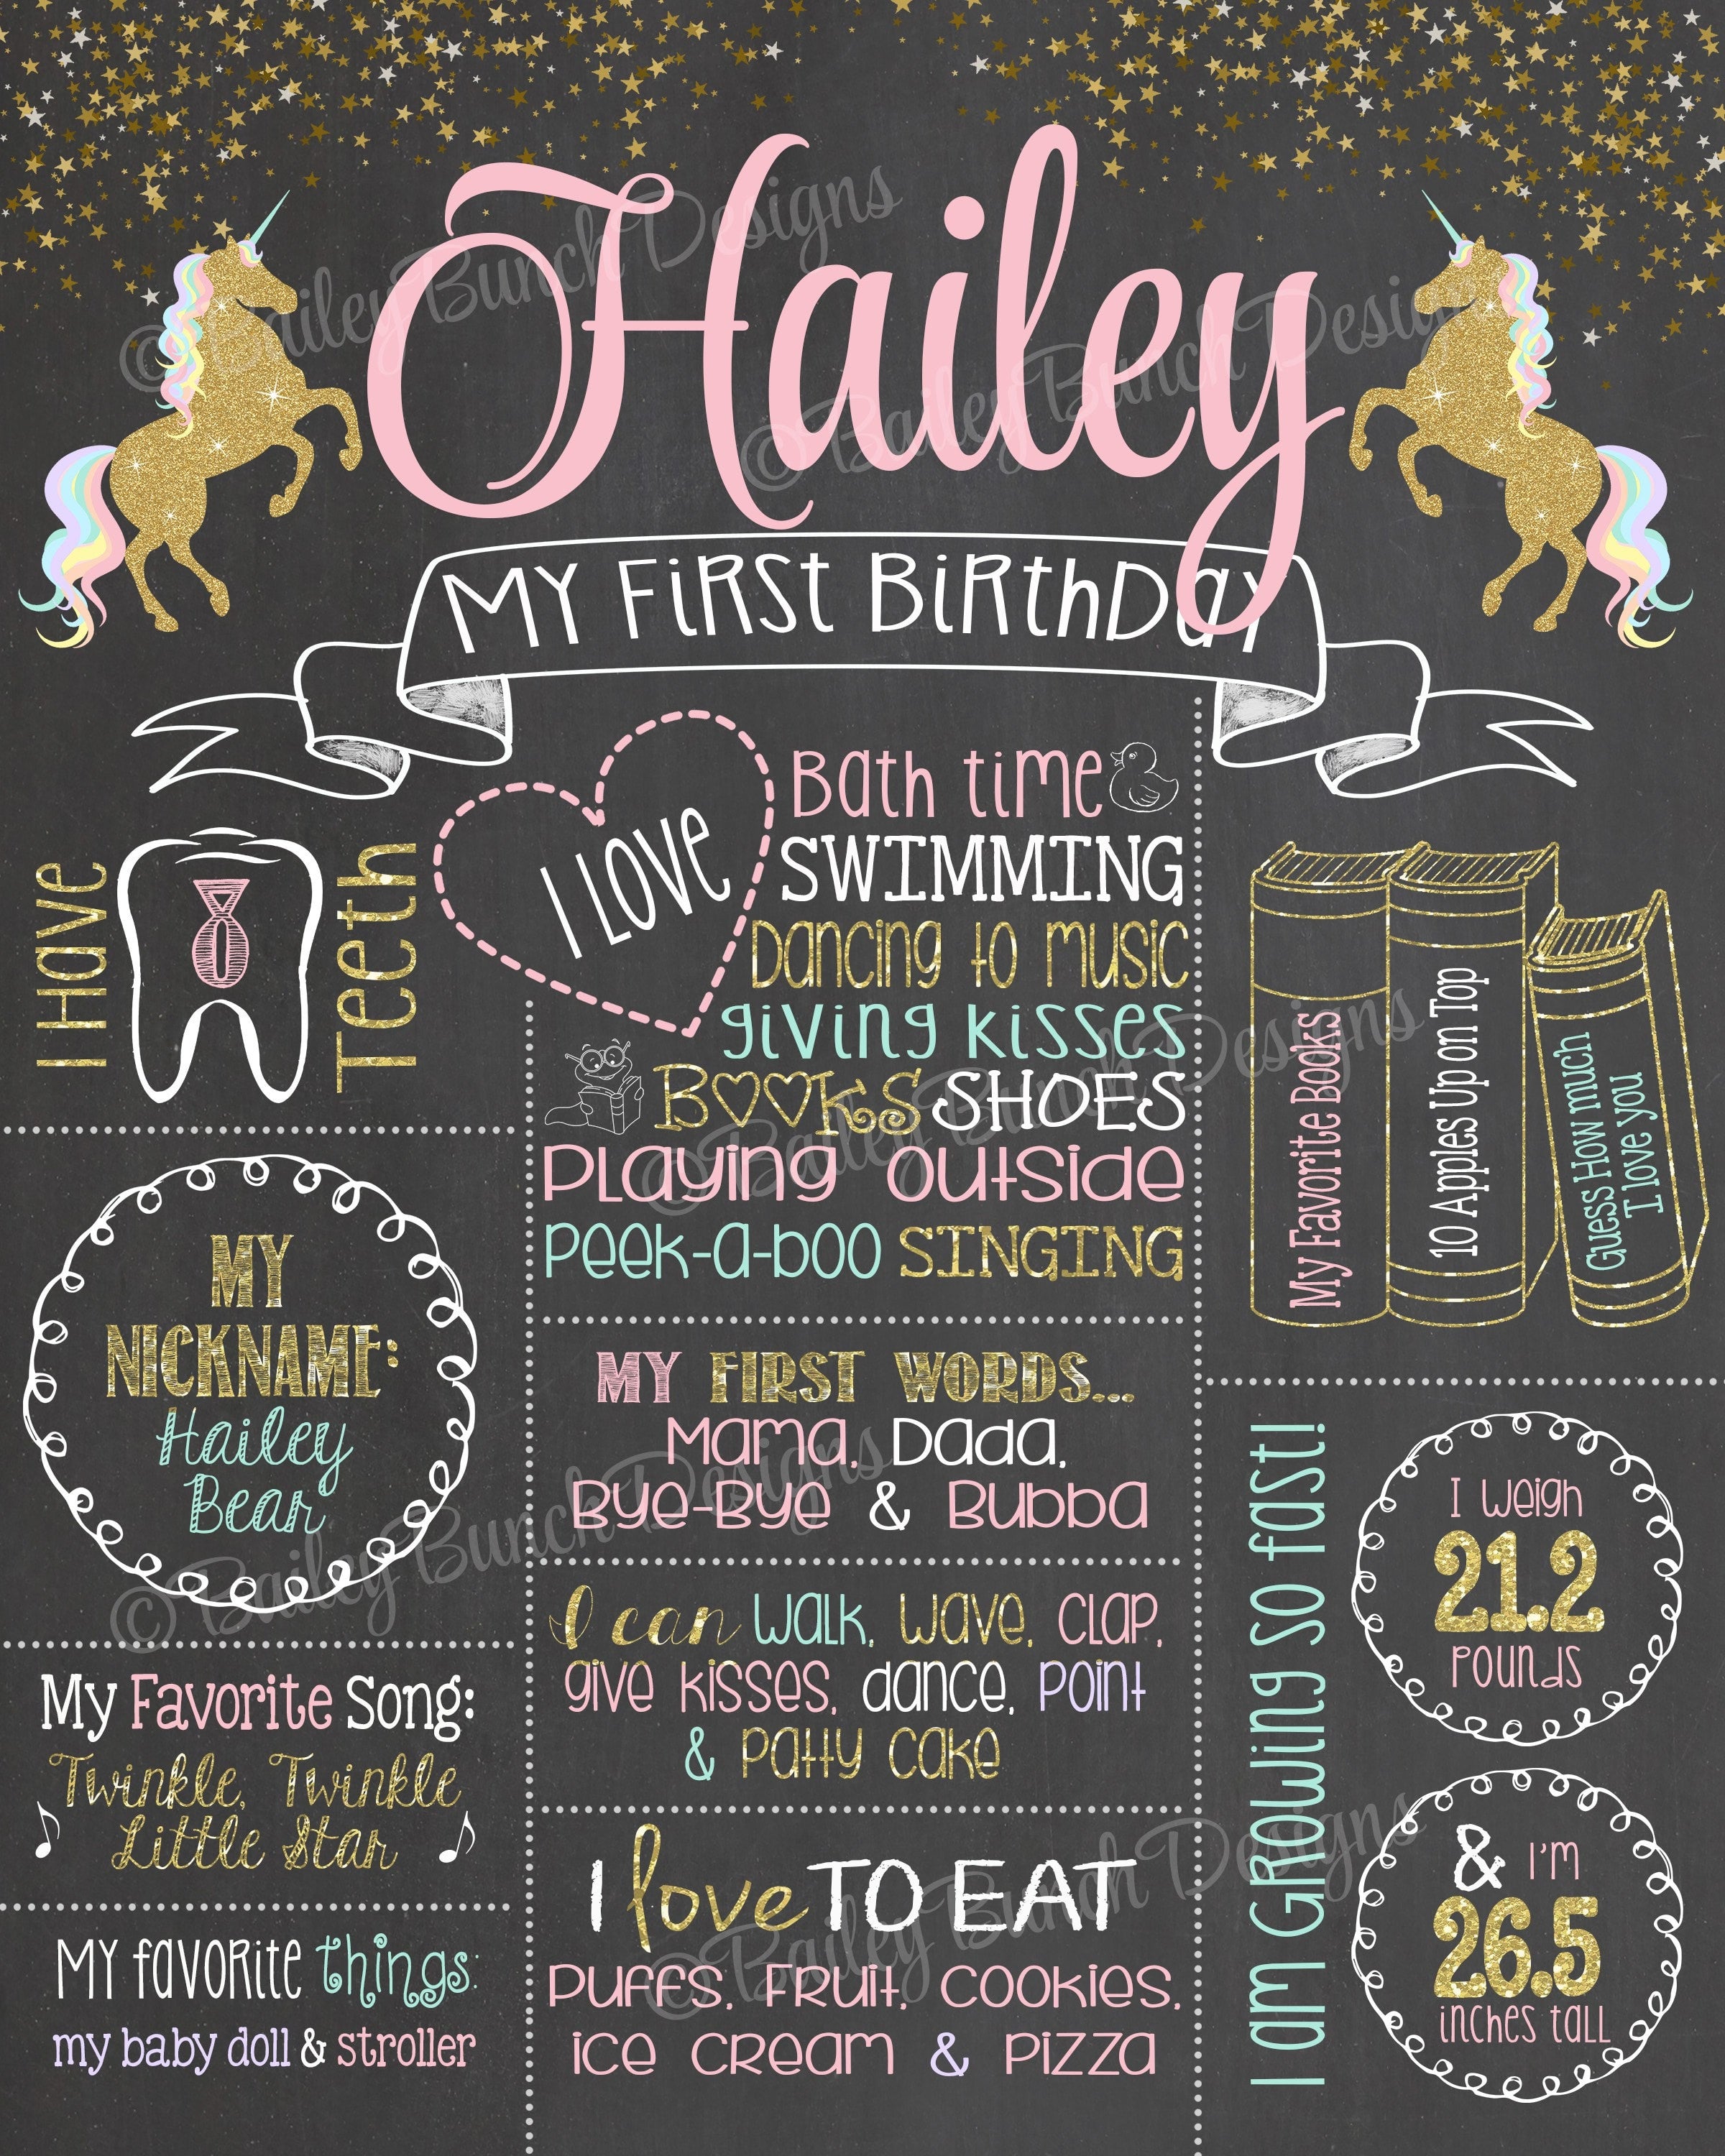 Hailey
MY FiRST BiRthDaY
I Have
Teeth
I LOVE
Bath time
SWIMMING
Dancing to music
giving kisses
BOOKS SHOES
Playing outside
Peek-a-boo SINGING
My Favorite Books
10 Apples Up on Top
Guess How much
I love you
MY
NICKNAME:
Hailey
Bear
MY FIRST WORDS...
Mama, Dada,
Bye-Bye & Bubba
I can walk, wave, clap,
give kisses, dance, point
& patty cake
My Favorite Song:
Twinkle, Twinkle
Little Star
MY favoRite things:
my baby doll & stroller
I love TO EAT
Puffs, Fruit, Cookies,
ice cream & pizza
I am Growing so fast!
I weigh
21.2
pounds
& I'm
26.5
inches tall
© Bailey Bunch Designs
© Bailey Bunch Designs
© Bailey Bunch Designs
© Bailey Bunch Designs
© Bailey Bunch Designs